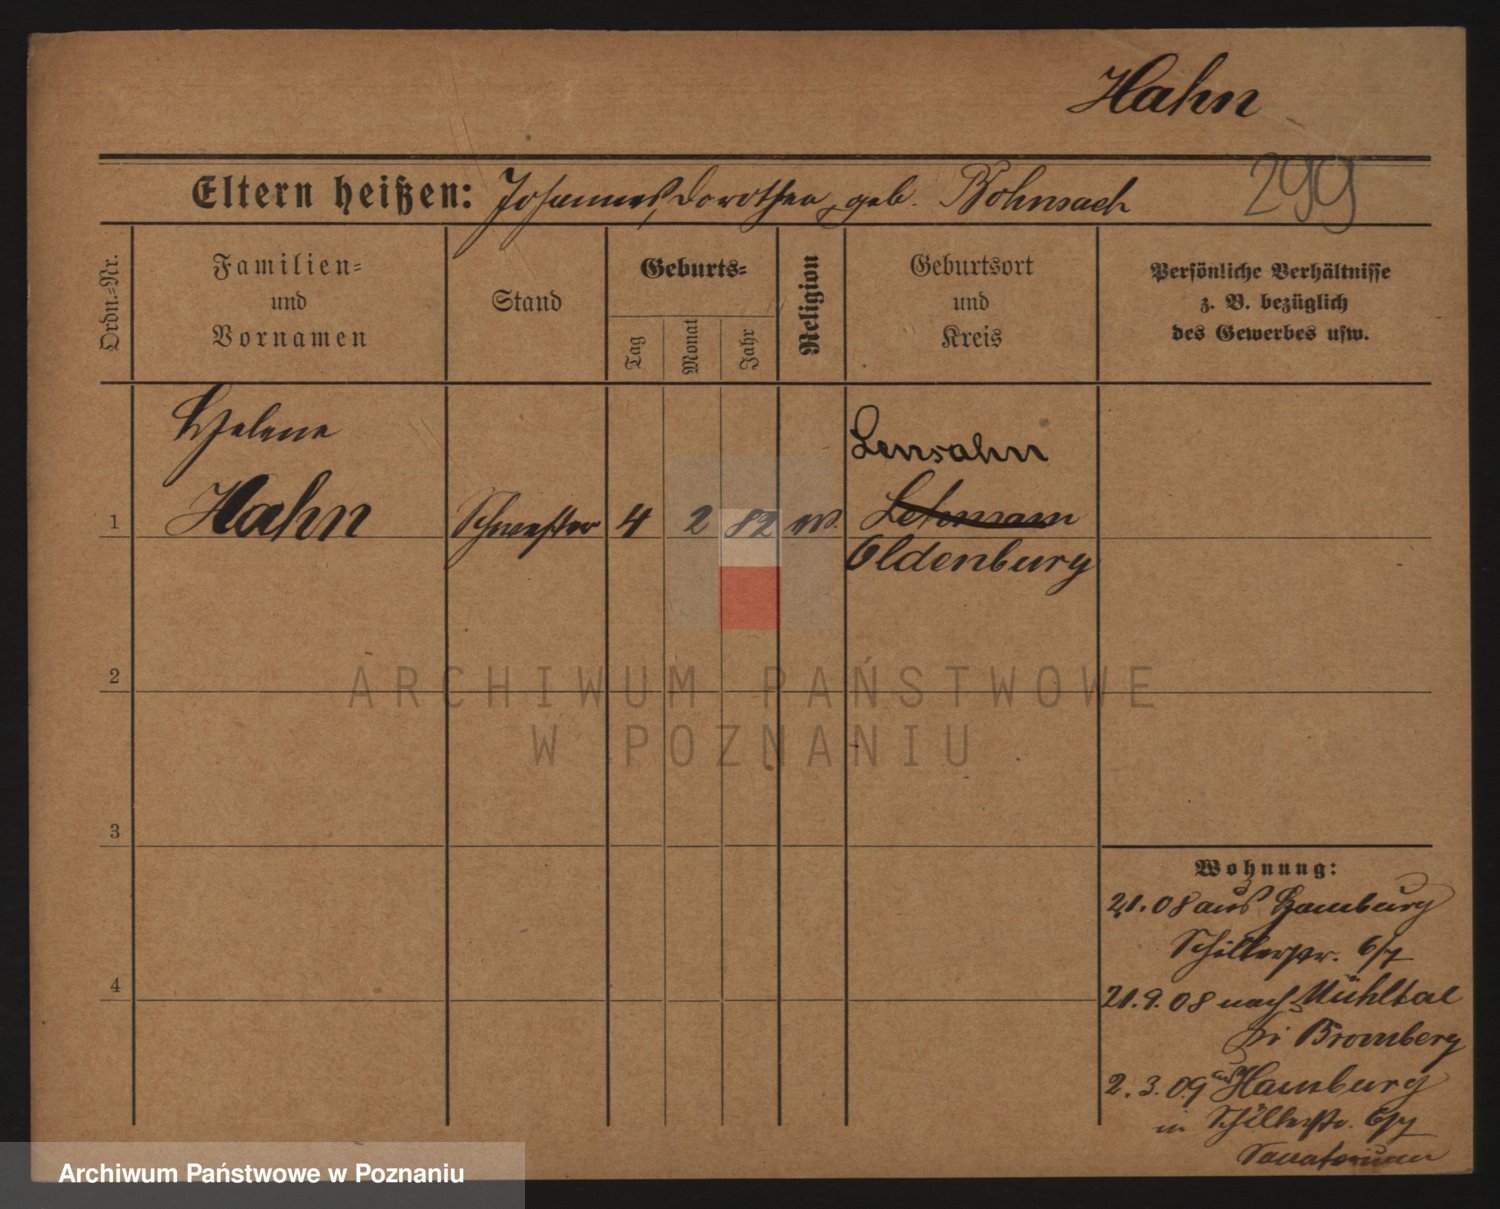 Hahn
Eltern heißen: Johannes, Dorothea, geb. Bohnsack
299
Ordn.-Nr.
Familien-
und
Vornamen
Stand
Geburts-
Tag
Monat
Jahr
Religion
Geburtsort
und
Kreis
Persönliche Verhältnisse
z. B. bezüglich
des Gewerbes usw.
Helene
Lensahn
1 Hahn Schwester 4 2 82
Oldenburg
2
ARCHIWUM PAŃSTWOWE
W POZNANIU
3
Wohnung:
aus Hamburg
Schillerstr. 6/7
4
21.9.08 nach Mühltal
bei Bromberg
2.3.09 aus Hamburg
in Schillerstr. 6/7
Sanatorium
Archiwum Państwowe w Poznaniu